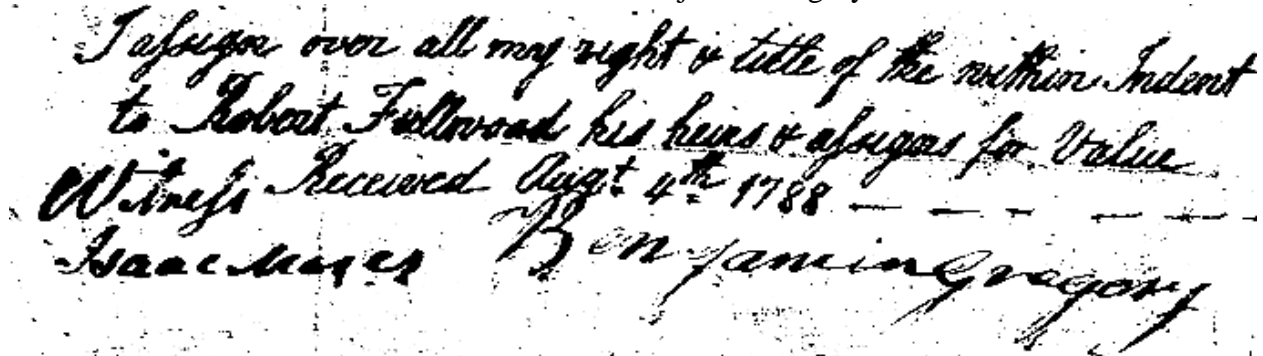 I assign over all my right & title of the within Indent
to Robert Fullwood his heirs & assigns for Value
Received Augt. 4th 1788
Witness
Isaac Benjamin Gregory